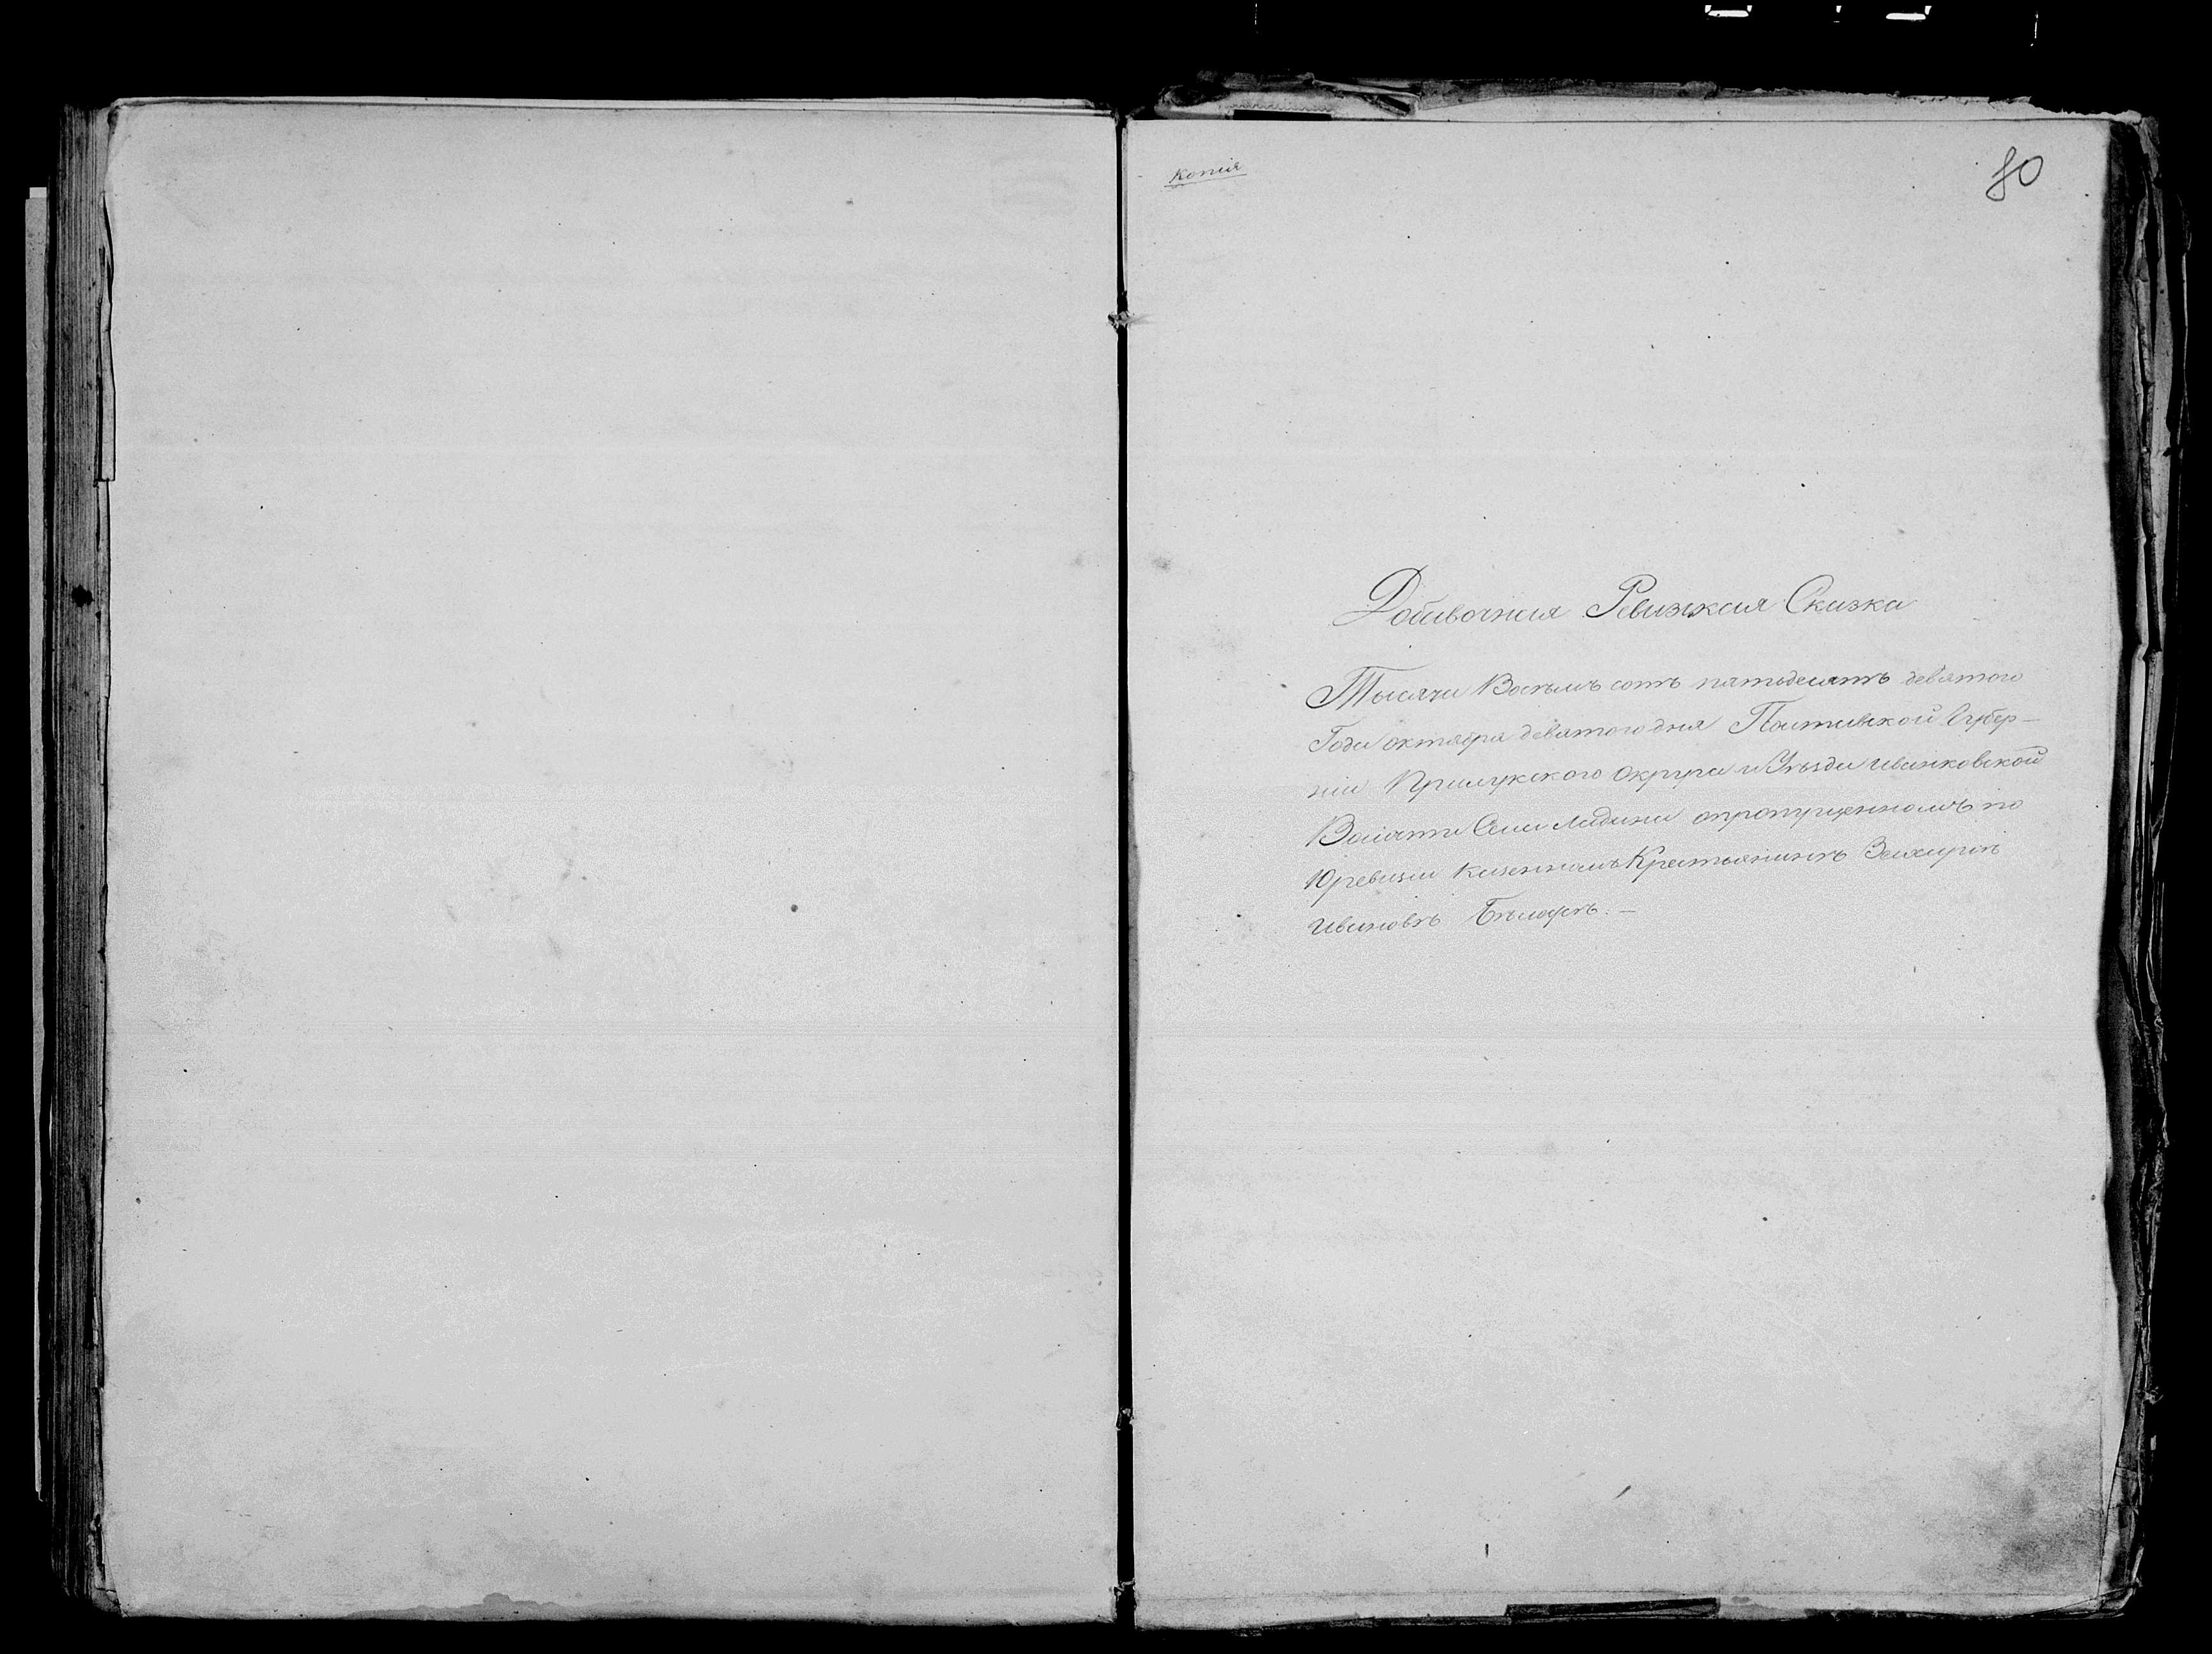 Копія
80
Добавочная Ревизкая Сказка
Тысяча Восемъ сотъ пятьдесятъ девятого
Года октября девятого дня Полтавской Губер-
ніи Прилукского округа и Уѣзда Иванковской
Волости Села Ладина опропущенномъ по
10 ревизіи казенномъ Крестьянинѣ Захаріѣ
Ивановѣ